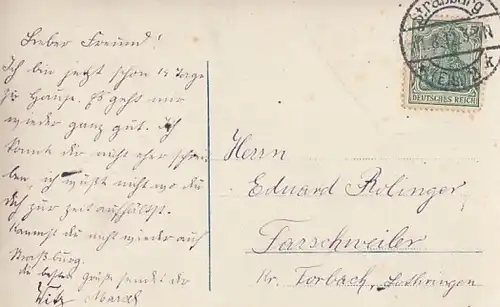 Lieber Freund!
Ich bin jetzt schon 14 Tage
zu Hause. Es geht mir
wieder ganz gut. Ich
konnte dir nicht eher schrei-
ben, ich wußte nicht wo du
dich zur zeit aufhältst.
Kommst du nicht wieder auf
Straßburg.
die besten Grüße sendet dir
Straßburg
DEUTSCHES REICH
Herrn
Eduard Rolinger
Farschweiler
Kr. Forbach, Lothringen